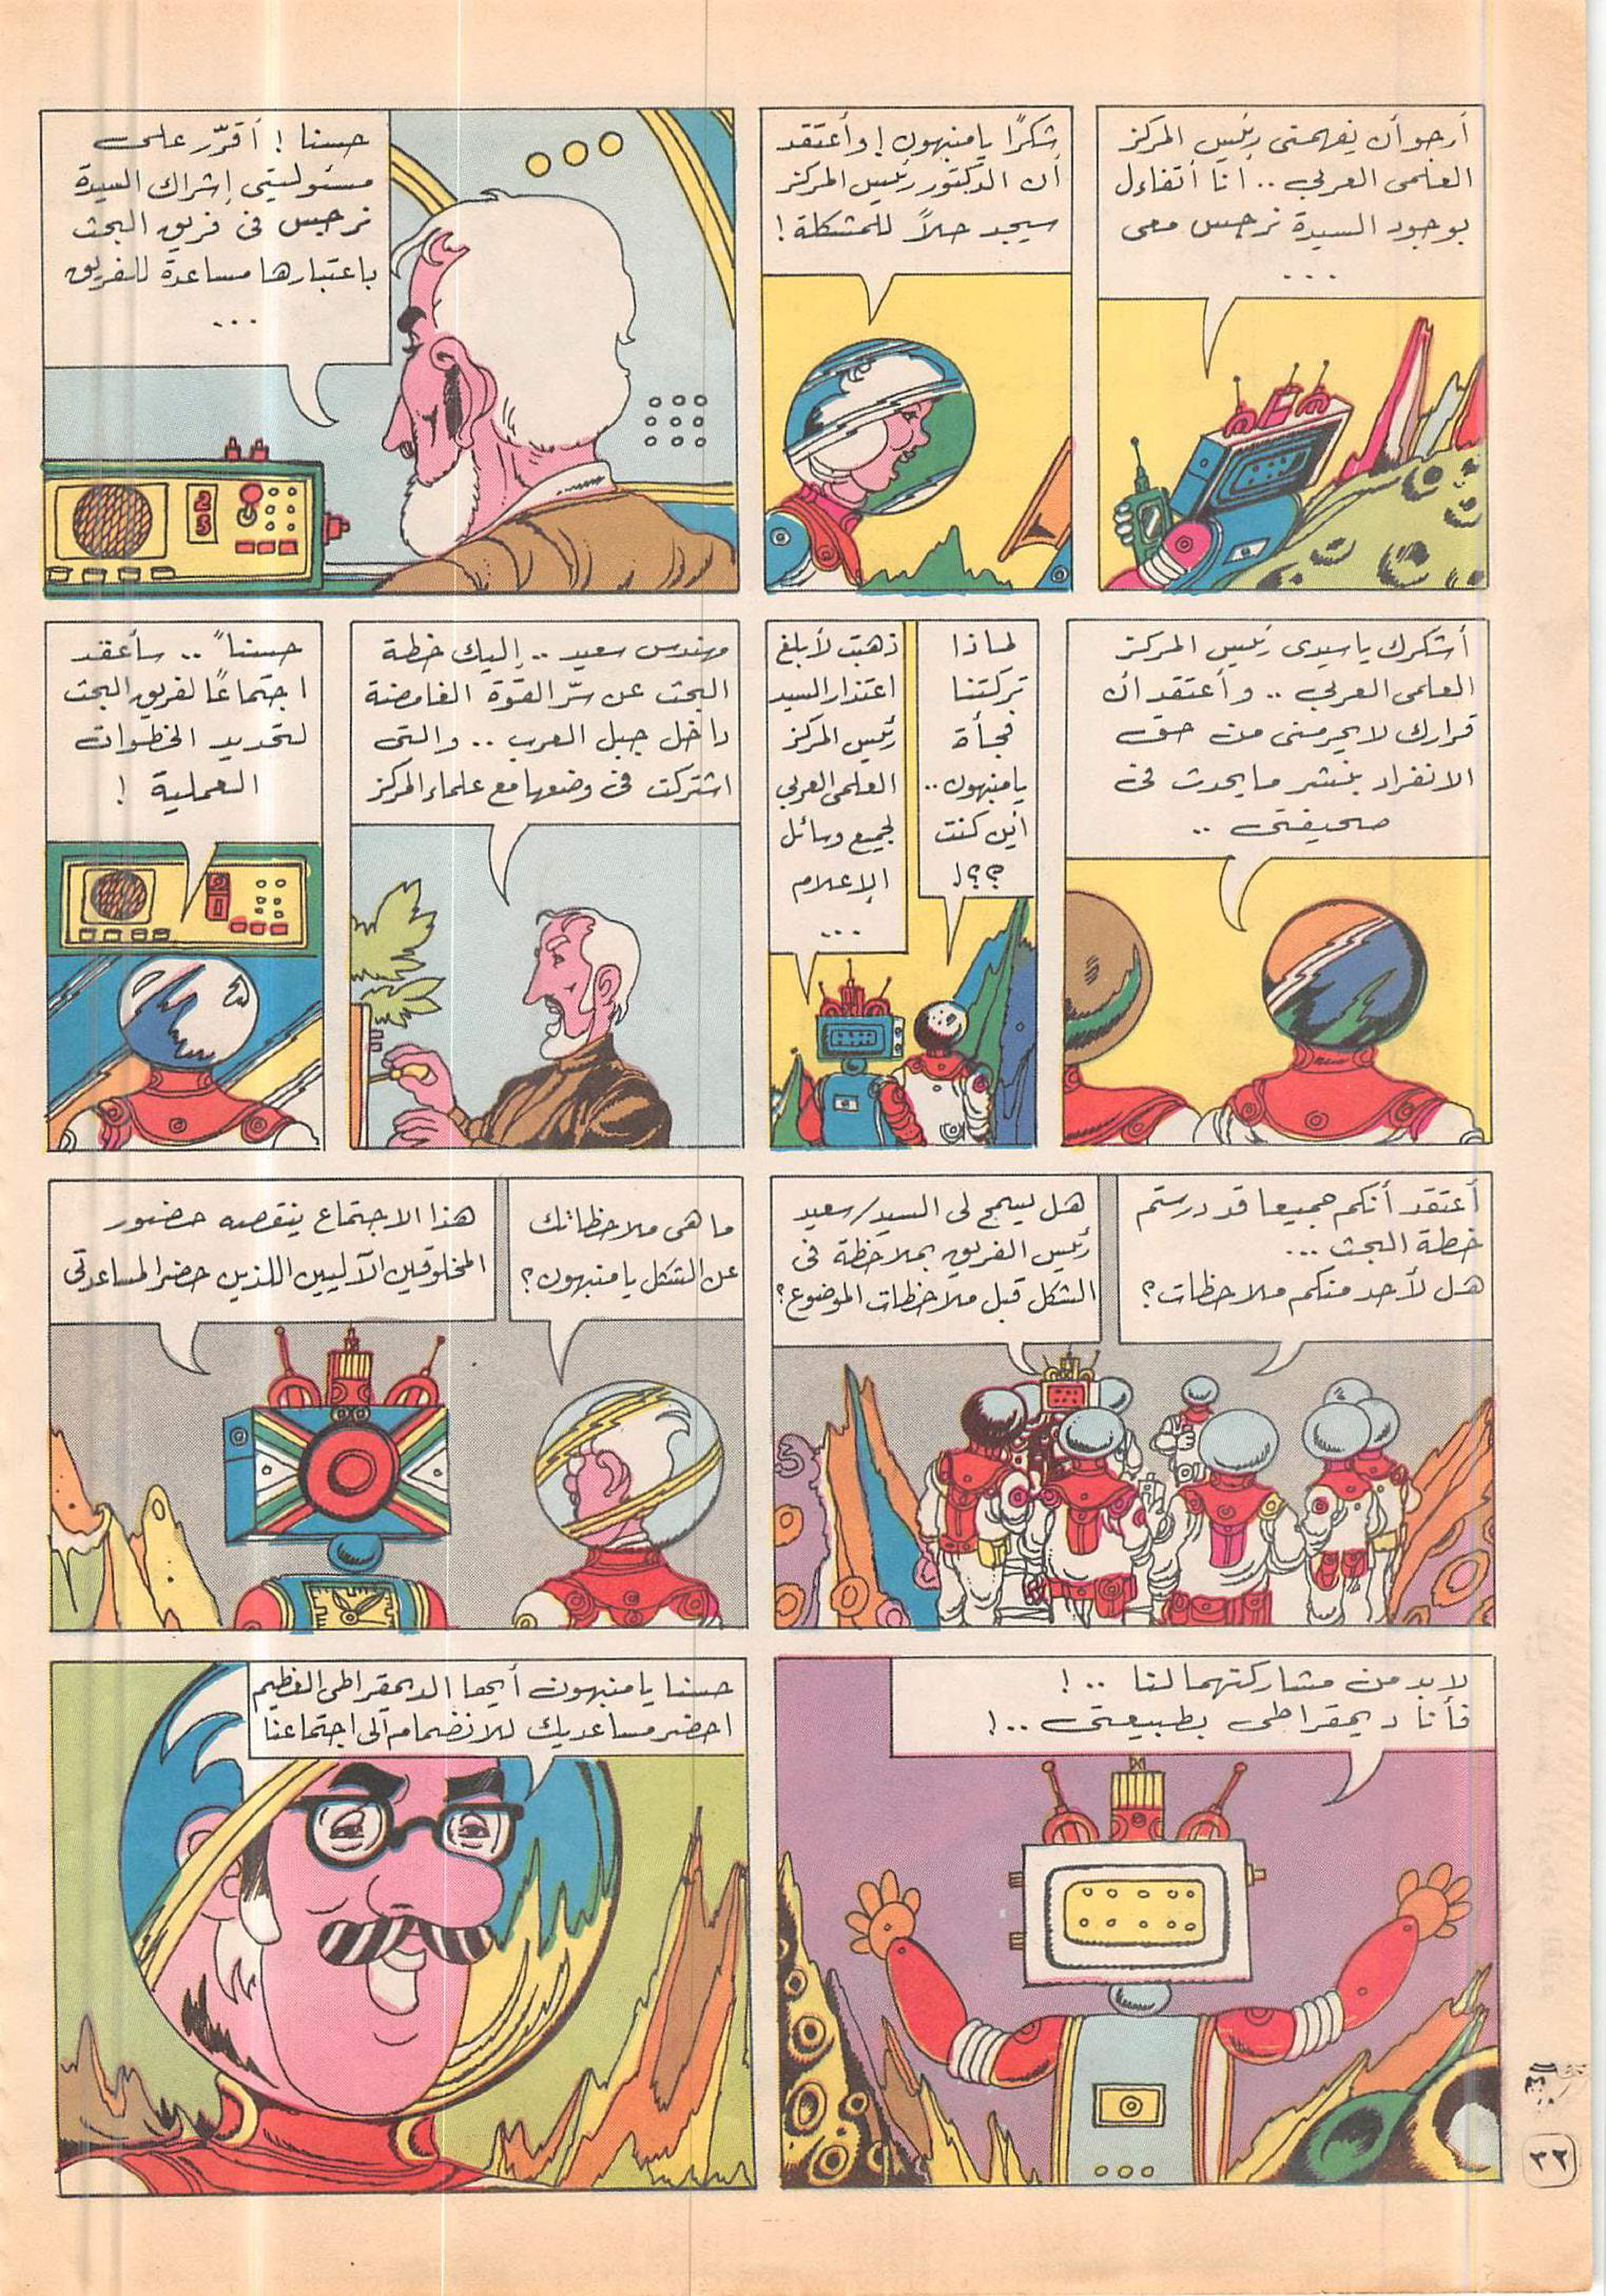 أرجو أن يفهمنى رئيس المركز
العلمى العربى .. انا أتفاءل
بوجود السيدة نرجس معى
...
شكرًا يا منبهون ! وأعتقد
أن الدكتور رئيس المركز
سيجد حلاً للمشكلة !
حسنا ! أقرّر على
مسئوليتى إشراك السيدة
نرجس فى فريق البحث
باعتبارها مساعدة للفريق
...
أشكرك يا سيدى رئيس المركز
العلمى العربى .. وأعتقد أن
قرارك لا يحرمنى من حق
الانفراد بنشر ما يحدث فى
صحيفتى ..
لماذا
تركتنا
فجأة
يا منبهون ..
أين كنت
؟؟!
ذهبت لأبلغ
اعتذار السيد
رئيس المركز
العلمى العربى
لجميع وسائل
الإعلام
...
مهندس سعيد .. إليك خطة
البحث عن سرّ القوة الغامضة
داخل جبل العرب .. والتى
اشتركت فى وضعها مع علماء المركز
حسناً .. سأعقد
اجتماعًا لفريق البحث
لتحديد الخطوات
العملية !
25
أعتقد أنكم جميعا قد درستم
خطة البحث ...
هل لأحد منكم ملاحظات؟
هل يسمح لى السيد/سعيد
رئيس الفريق بملاحظة فى
الشكل قبل ملاحظات الموضوع؟
ما هى ملاحظاتك
عن الشكل يا منبهون؟
هذا الاجتماع ينقصه حضور
المخلوقين الآليين اللذين حضرا لمساعدتى
لابد من مشاركتهما لنا ..!
فأنا ديمقراطى بطبيعتى ..!
حسنا يا منبهون أيها الديمقراطى العظيم
احضر مساعديك للانضمام الى اجتماعنا
٣٢